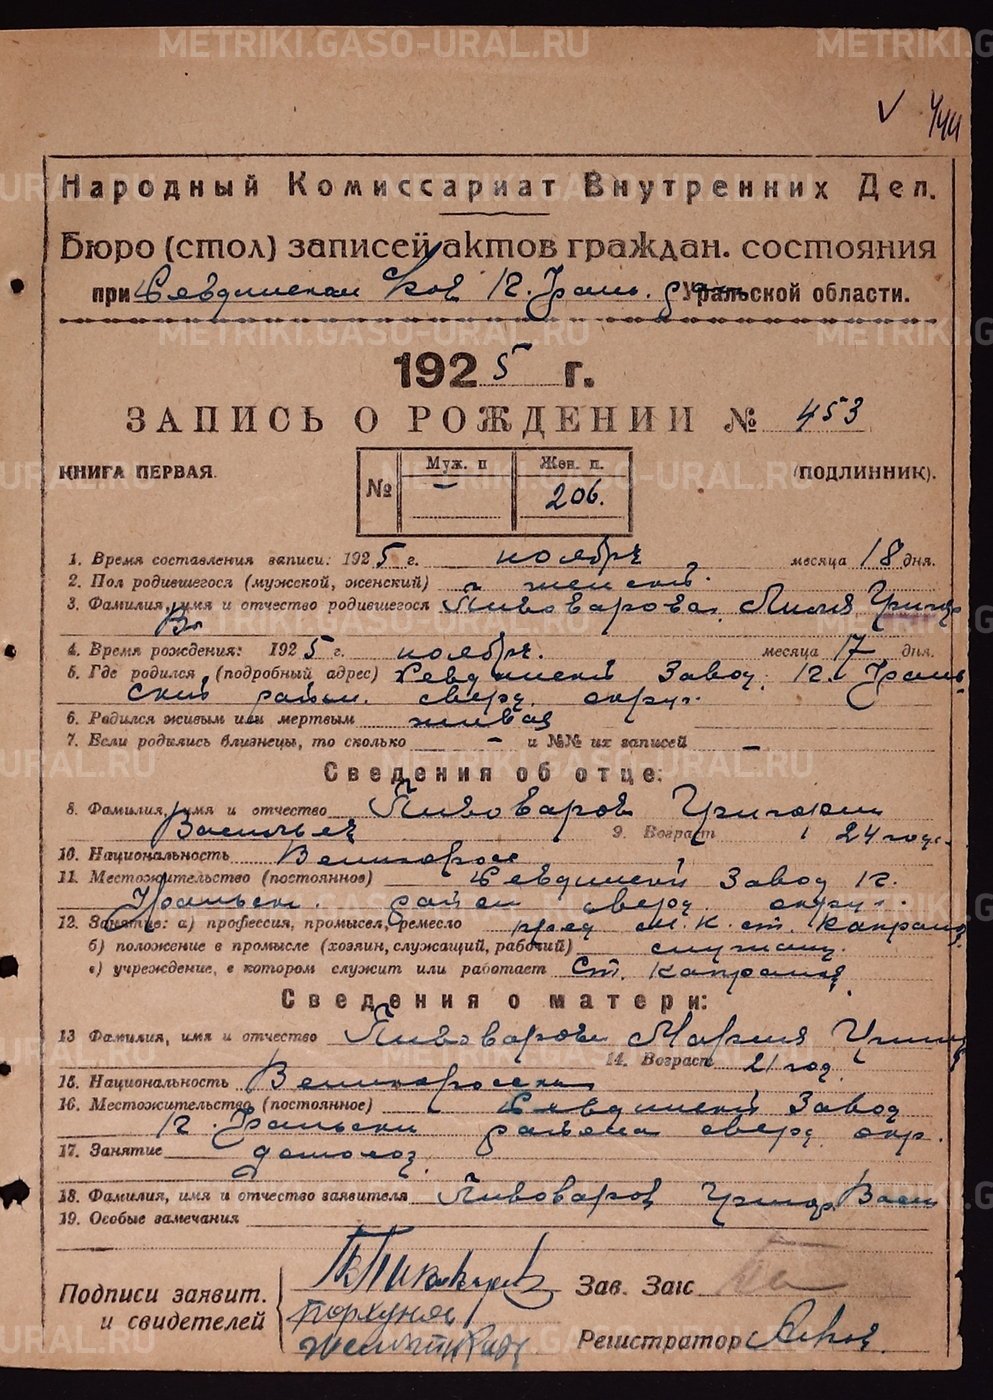 METRIKI.GASO-URAL.RU
444
Народный Комиссариат Внутренних Дел.
Бюро (стол) записей актов граждан. состояния
при Ревдинском 1г. Ураль. Уральской области.
1925 г.
ЗАПИСЬ О РОЖДЕНИИ № 453
КНИГА ПЕРВАЯ. (ПОДЛИННИК).
№ Муж. п Жен. п.
— 206.
1. Время составления записи: 1925 г. ноября месяца 18 дня.
2. Пол родившегося (мужской, женский) женский.
3. Фамилия, имя и отчество родившегося Пивоварова Григор
4. Время рождения: 1925 г. ноября. месяца 17 дня.
5. Где родился, (подробный адрес) Ревдинский Завод. 1г. Ураль-
ский район. сверд. округ.
6. Родился живым или мертвым живая
7. Если родились близнецы, то сколько — и №№ их записей —
Сведения об отце:
8. Фамилия, имя и отчество Пивоваров Григорий
Васильев 9. Возраст 24 года
10. Национальность Великоросс
11. Местожительство (постоянное) Ревдинский Завод 1г.
Уральск. район сверд. округ.
12. Занятие: а) профессия, промысел, ремесло М.К. ст. Капралово
б) положение в промысле (хозяин, служащий, рабочий) служащ.
в) учреждение, в котором служит или работает Ст. Капралово
Сведения о матери:
13 Фамилия, имя и отчество Пивоварова Мария Григ
14. Возраст 21 год.
15. Национальность Великоросска
16. Местожительство (постоянное) Ревдинский Завод
1г. Уральский района сверд. окр.
17. Занятие домохоз.
18. Фамилия, имя и отчество заявителя Пивоваров Григор Васил
19. Особые замечания
Подписи заявит. и свидетелей
Зав. Загс
Регистратор